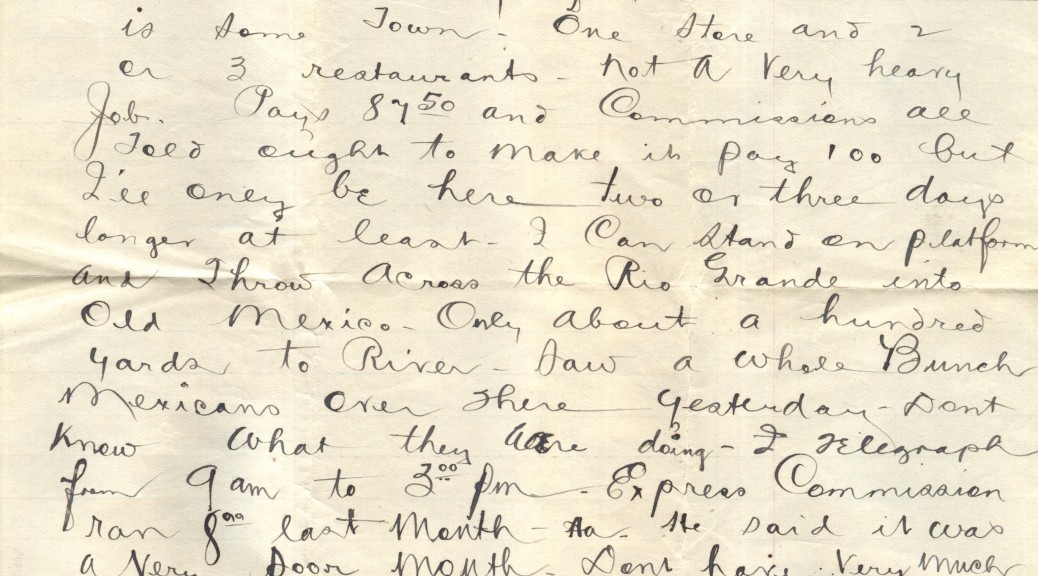 is some Town! - One Store and 2
or 3 restaurants - not a Very heavy
Job. Pays 87 50 and Commissions all
Told ought to make it pay 100 but
I'll oney be here two or three days
longer at least - I Can Stand on platform
and Throw Across the Rio Grande into
Old Mexico - Only About a hundred
yards to River - Saw a whole Bunch
Mexicans over there yesterday - Dont
Know What they are doing - I Telegraph
from 9 am to 3 00 pm - Express Commission
ran 8 00 last Month - He said it was
a Very poor Month - Dont have Very Much